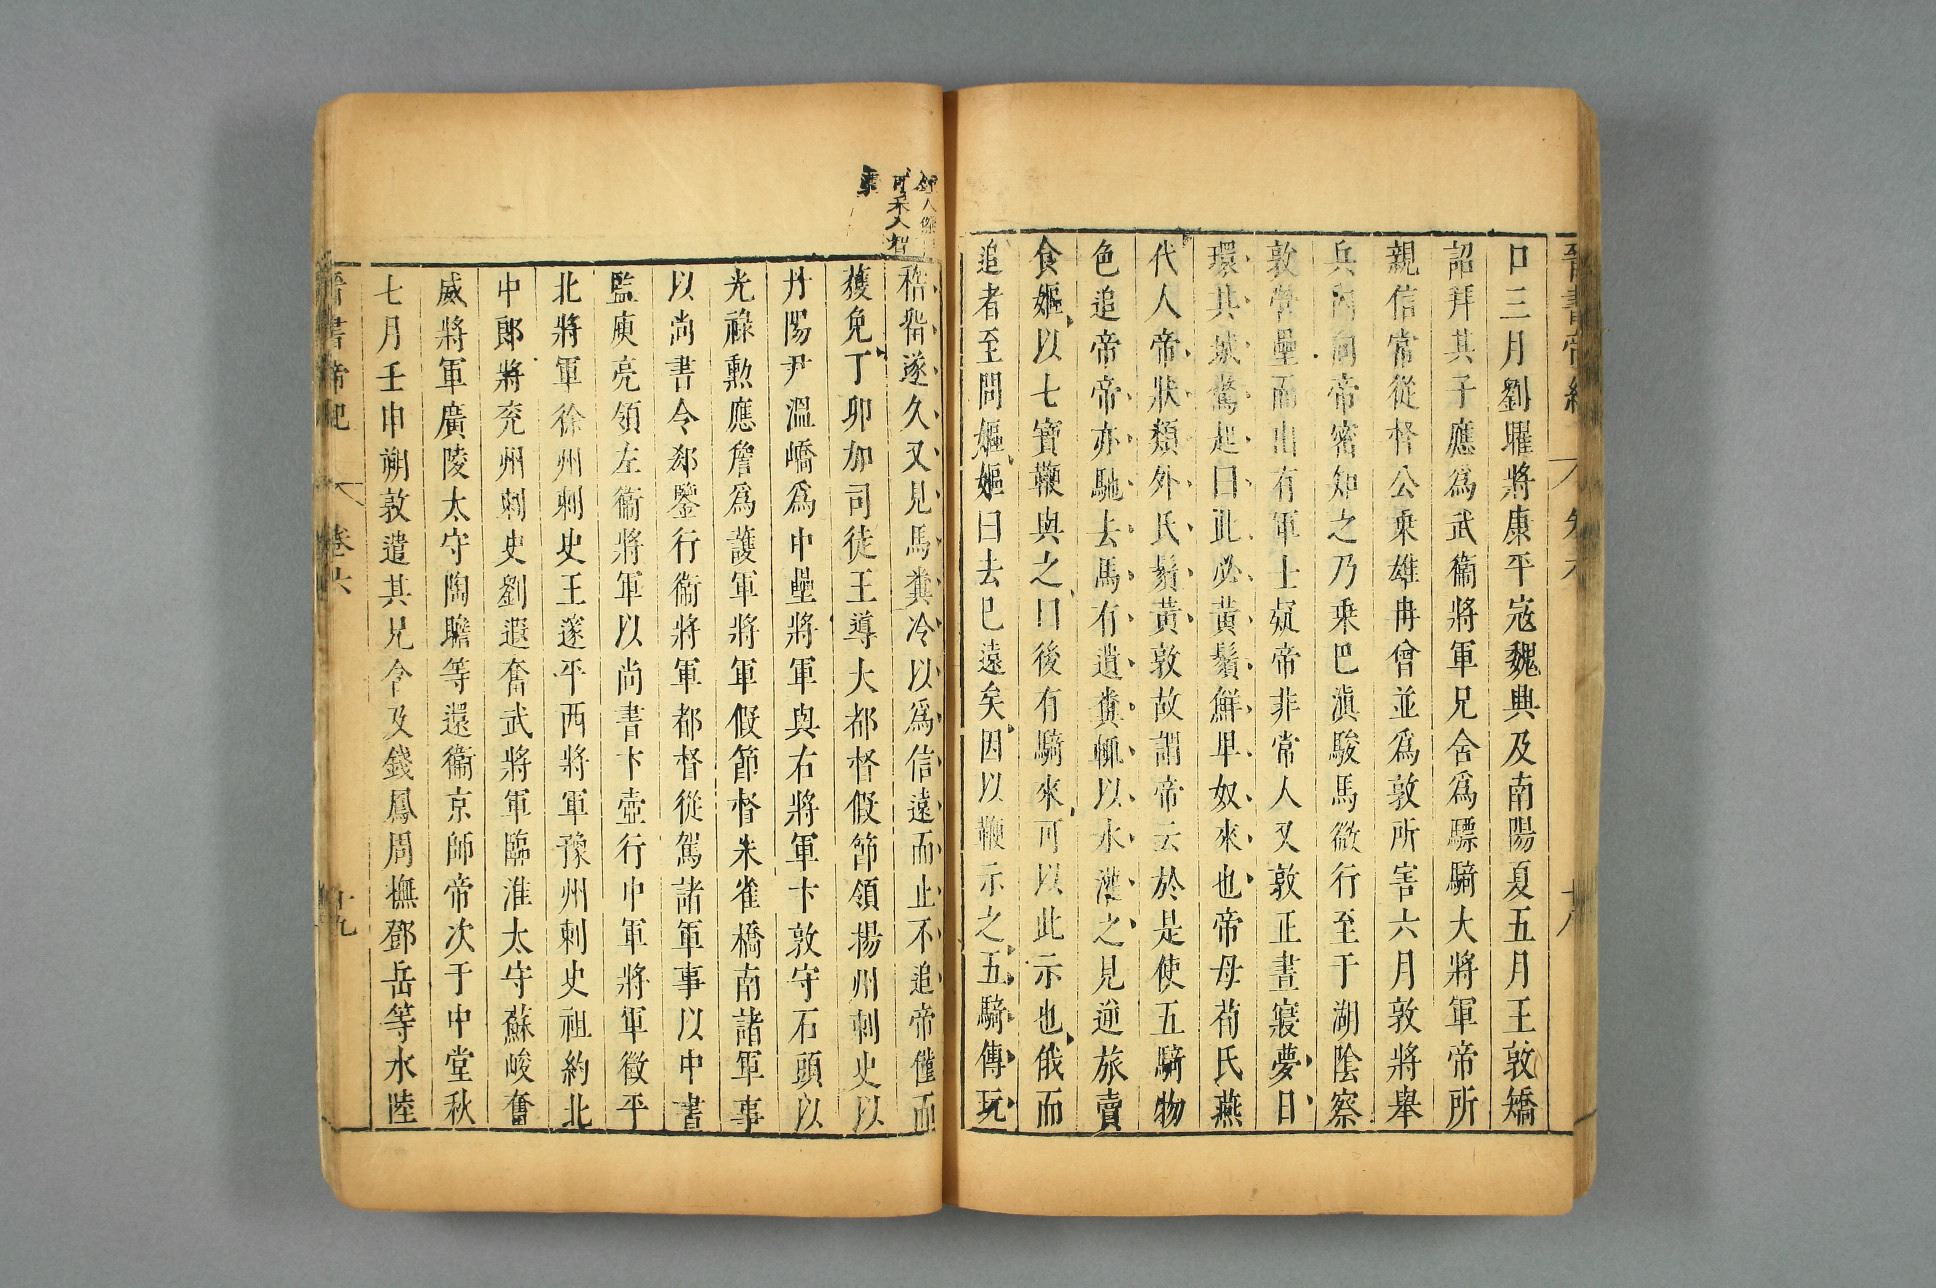 晉書帝紀 卷六 十八
口三月劉曜將康平寇魏興及南陽夏五月王敦矯
詔拜其子應爲武衞將軍兄含爲驃騎大將軍帝所
親信常從督公乘雄冉曾並爲敦所害六月敦將舉
兵內向帝密知之乃乘巴滇駿馬微行至于湖陰察
敦營壘而出有軍士疑帝非常人又敦正晝寢夢日
環其城驚起曰此必黃鬚鮮卑奴來也帝母荀氏燕
代人帝狀類外氏鬚黃敦故謂帝云於是使五騎物
色追帝帝亦馳去馬有遺糞輒以水灌之見逆旅賣
食嫗以七寶鞭與之曰後有騎來可以此示也俄而
追者至問嫗嫗曰去已遠矣因以鞭示之五騎傳玩
稽留遂久又見馬糞冷以爲信遠而止不追帝僅而
獲免丁卯加司徒王導大都督假節領揚州刺史以
丹陽尹溫嶠爲中壘將軍與右將軍卞敦守石頭以
光祿勲應詹爲護軍將軍假節督朱雀橋南諸軍事
以尚書令郄鑒行衞將軍都督從駕諸軍事以中書
監庾亮領左衞將軍以尚書卞壼行中軍將軍徵平
北將軍徐州刺史王邃平西將軍豫州刺史祖約北
中郎將兖州刺史劉遐奮武將軍臨淮太守蘇峻奮
威將軍廣陵太守陶瞻等還衞京師帝次于中堂秋
七月壬申朔敦遣其兄含及錢鳳周撫鄧岳等水陸
晉書帝紀 卷六 十九